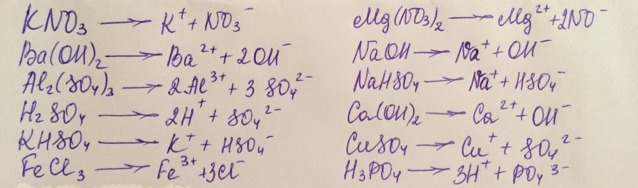 KNO₃ → K⁺ + NO₃⁻
Ba(OH)₂ → Ba²⁺ + 2OH⁻
Al₂(SO₄)₃ → 2Al³⁺ + 3 SO₄²⁻
H₂SO₄ → 2H⁺ + SO₄²⁻
KHSO₄ → K⁺ + HSO₄⁻
FeCl₃ → Fe³⁺ + 3Cl⁻
Mg(NO₃)₂ → Mg²⁺ + 2NO⁻
NaOH → Na⁺ + OH⁻
NaHSO₄ → Na⁺ + HSO₄⁻
Ca(OH)₂ → Ca²⁺ + OH⁻
CuSO₄ → Cu⁺ + SO₄²⁻
H₃PO₄ → 3H⁺ + PO₄³⁻